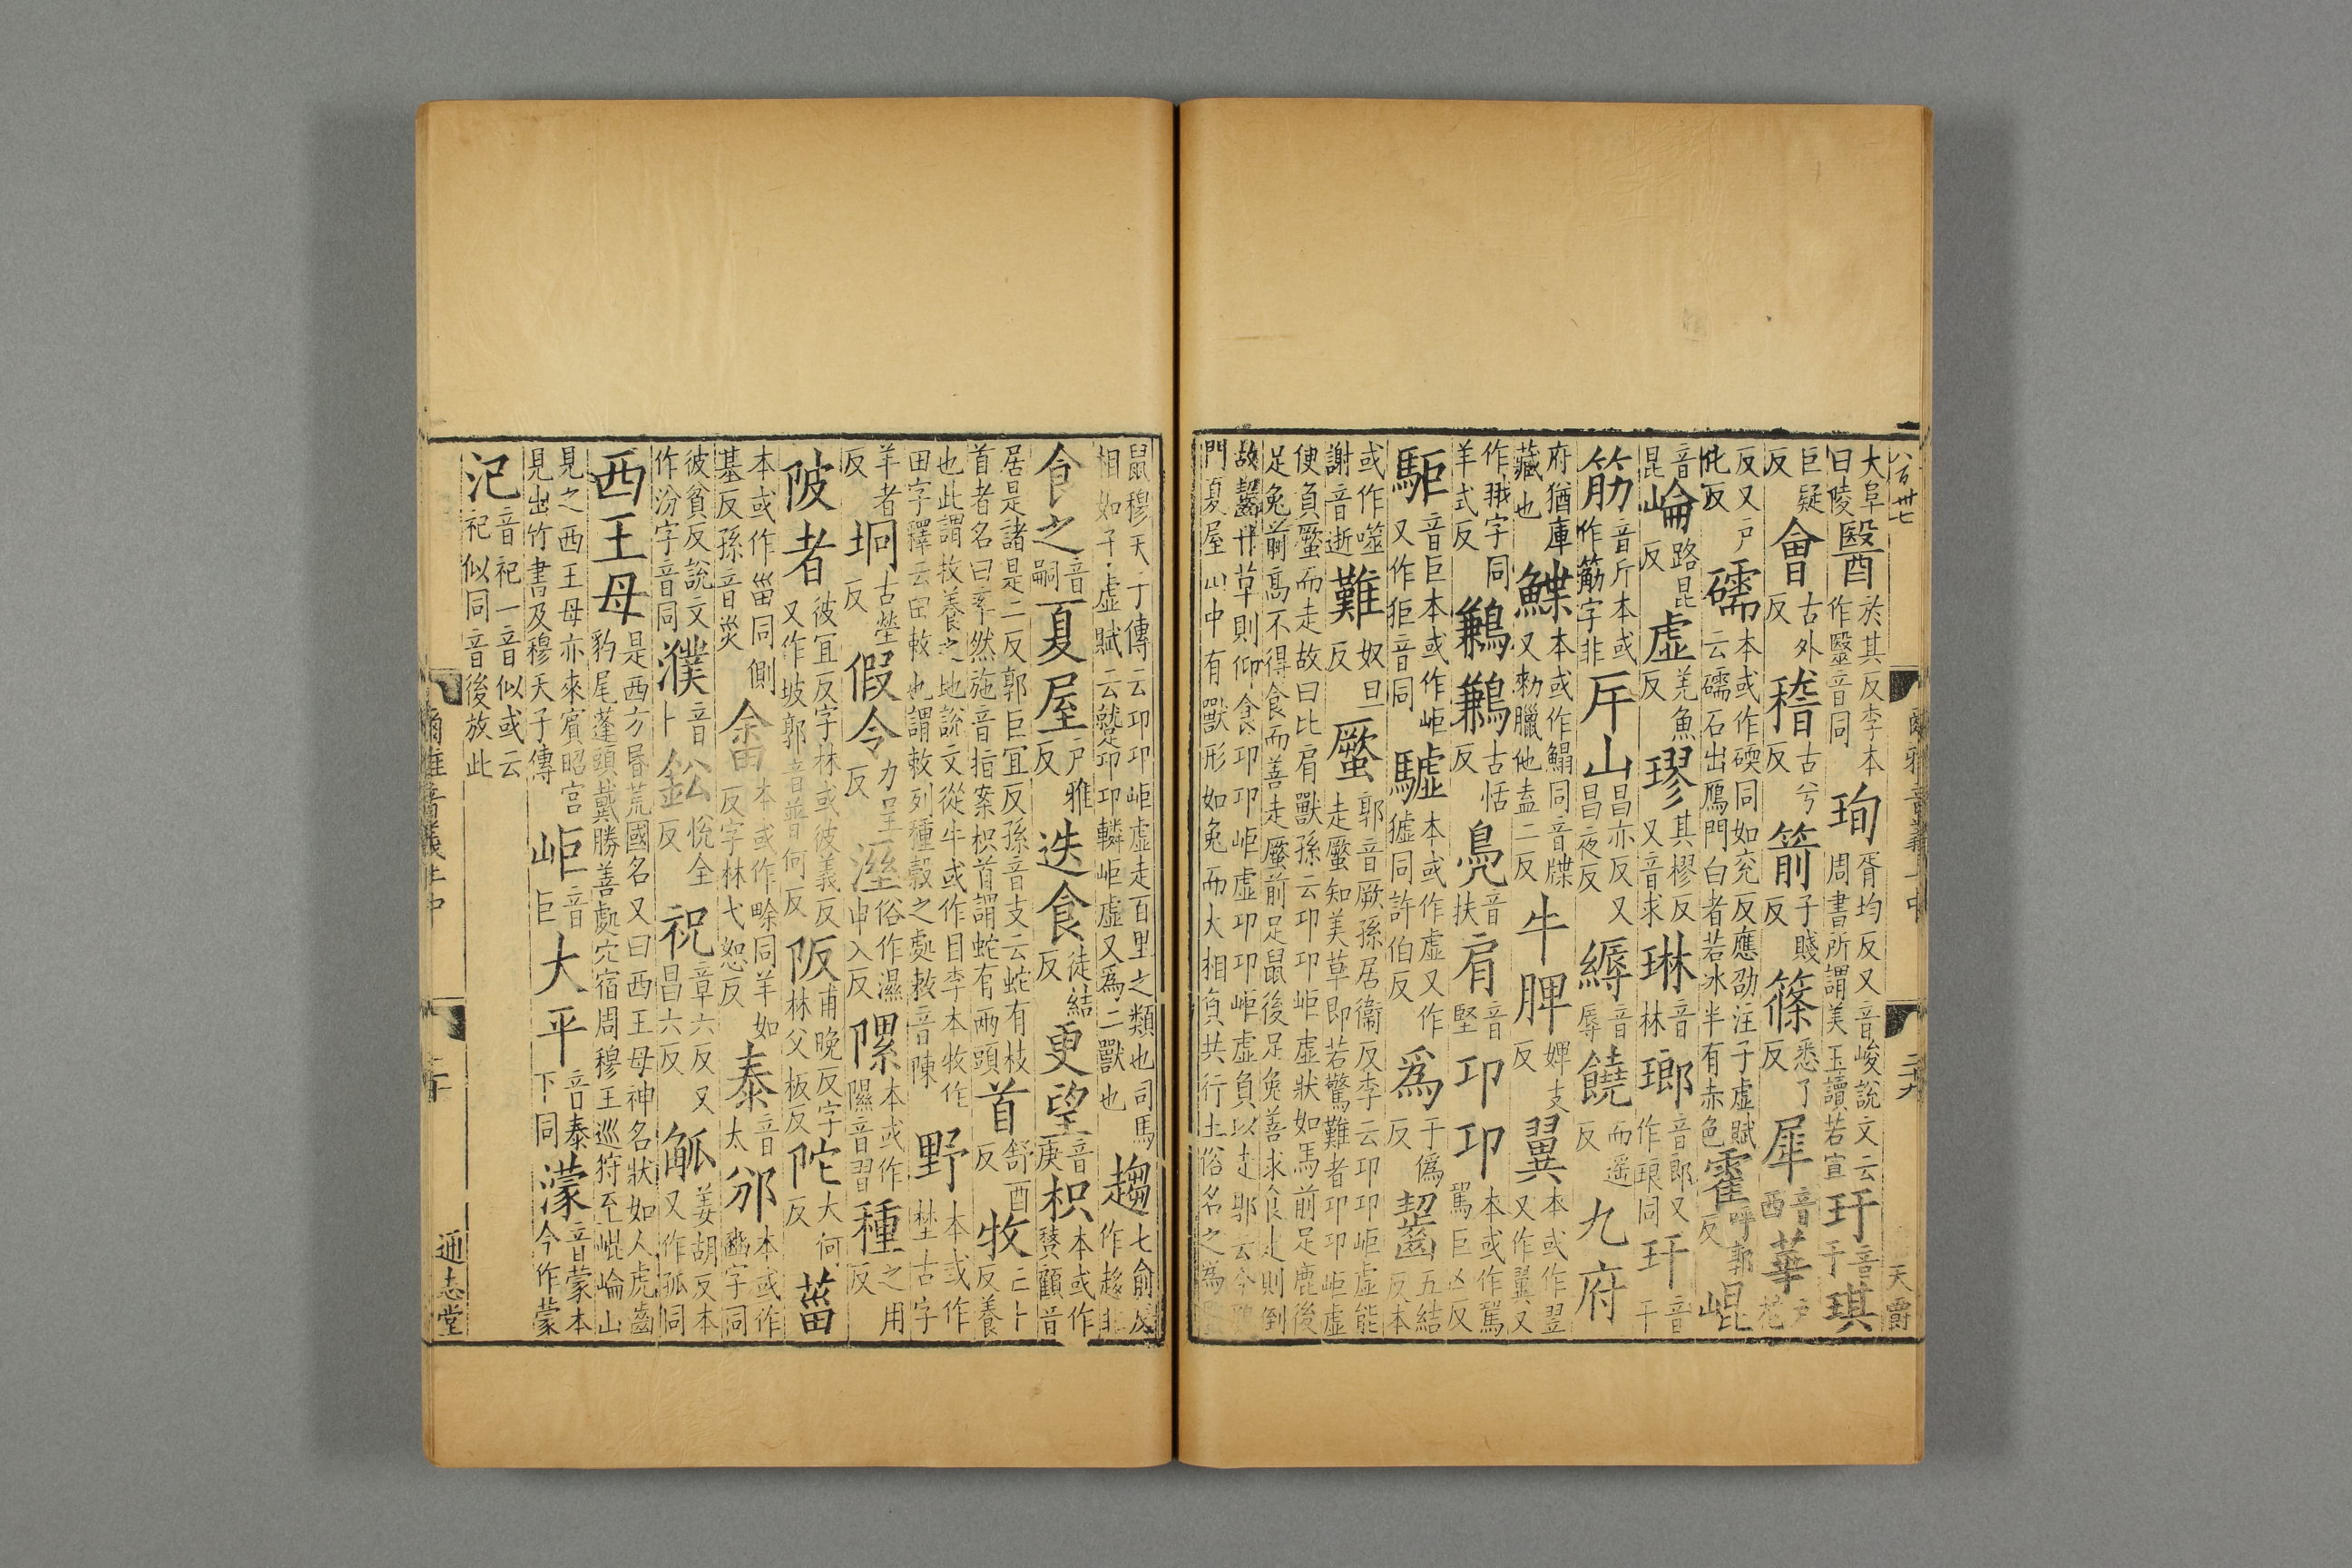 八百卅七
大阜曰陵 醫 於其反李本作毉音同 珣 胥均反又音峻說文云周書所謂美玉讀若宣 玕 音干 琪
巨疑反 會 古外反 稽 古兮反 箭 子賤反 篠 悉了反 犀 音西 華
反又戶化反 礝 本或作碝同如兖反應劭注子虛賦云礝石出鴈門白者若冰半有赤色 霍 呼郭反 崐
音昆 崘 路昆反 虛 羌魚反 璆 其樛反又音求 琳 音林 瑯 音郎又作琅同 玕 音干
筋 音斤本或作觔字非 斥山 昌亦反又昌夜反 縟 音辱 饒 而遥反 九府
府猶庫藏也 鰈 本或作鰨同音牒又勑臘他盍二反 牛脾 婢支反 翼 本或作翌又作翼又
作𤟇字同羊式反 鶼鶼 古恬反 鳧 音扶 肩 音堅 卭卭 本或作駕駕巨凶反
駏 音巨本或作岠又作狚音同 驉 本或作虛又作獹同許伯反 爲 于僞反 齧 五結反本
或作噬謝音逝 難 奴旦反 蟨 郭音厥孫居衞反李云卭卭岠虛能走蟨知美草即若驚難者卭卭岠虛
便負蟨而走故曰比肩獸孫云卭卭岠虛狀如馬前足鹿後足兔前高不得食而善走蟨前足鼠後足兔善求食走則倒
故齧甘草則仰食卭卭岠虛卭卭岠虛負以走郭云今鴈門夏屋山中有獸形如兔而大相負共行土俗名之爲
爾雅音義上中
二九
天爵
鼠穆天子傳云卭卭岠虛走百里之類也司馬相如子虛賦云蹵卭卭轔岠虛又爲二獸也 趨 七俞反作趍非
食之 音嗣 夏屋 戶雅反 迭食 徒結反 更望 音庚 枳 本或作𧝓顧音
居是諸是二反郭巨宜反孫音支云蛇有枝首者名曰率然施音指案枳首謂蛇有兩頭 首 舒酉反 牧 亡卜反養
也此謂牧養之地說文從牛或作目李本牧作田字釋云田敕也謂敕列種穀之處敕音陳 野 本或作埜古字
羊者反 坰 古螢反 假令 力呈反 溼 俗作濕申入反 隰 本或作隰音習 種 之用反
陂者 彼冝反字林或彼義反又作坡郭音普何反 阪 甫晚反字林父板反 陀 大何反 菑
本或作甾同側基反孫音災 畬 本或作畭同羊如反字林弋恕反 泰 音太 邠 本或作豳字同
彼貧反說文作汾字音同 濮 音卜 鈆 悅全反 祝 章六反又昌六反 觚 姜胡反本又作孤同
西王母 是西方昬荒國名又曰西王母神名狀如人虎齒豹尾蓬頭戴勝善處穴宿周穆王巡狩至崐崘山
見之西王母亦來賓昭宮見出竹書及穆天子傳 岠 音巨 大平 音泰下同 濛 音蒙本今作蒙
汜 音祀一音似或云祀似同音後放此
爾雅音義上中
三十
通志堂